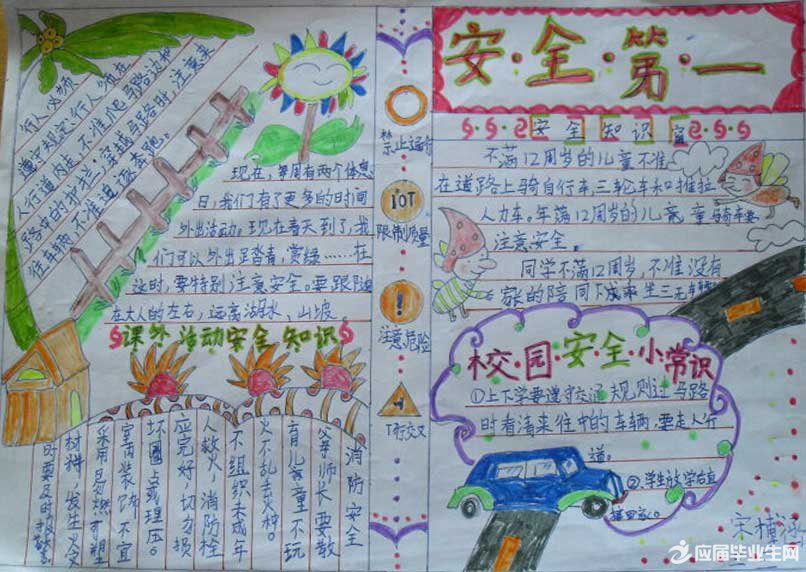 安·全·第·一
安全知识
不满12周岁的儿童不准
在道路上骑自行车,三轮车和推拉
人力车。年满12周岁的儿童骑车要
注意安全。
同学不满12周岁,不准没有
家的陪同下
校·园·安·全·小常识
①上下学要遵守交通规则过马路
时看清来往中的车辆,要走人行
道。
②.学生放学右直
禁止通行
10T
限制质量
!
注意危险
T行交叉
行人必须
遵守规定,行人须在
人行道内走,不准爬马路边和
路中的护拦;穿越马路时,注意来
往车辆,不准追逐奔跑。
现在,每周有两个休息
日,我们有了更多的时间
外出活动。现在春天到了,我
们可以外出足踏青,赏绿……在
这时,要特别注意安全。要跟随
在大人的左右,远离湖水,山坡。
课外活动安全知识
消防安全
父事师长要教
育儿童童不玩
火不乱丢火种。
不组织未成年
人救火,消防栓
应完好,切勿损
坏圈或埋压。
室内装饰不宜
采用易燃可塑
材料,发生火灾
时要及时报警。
应届毕业生网